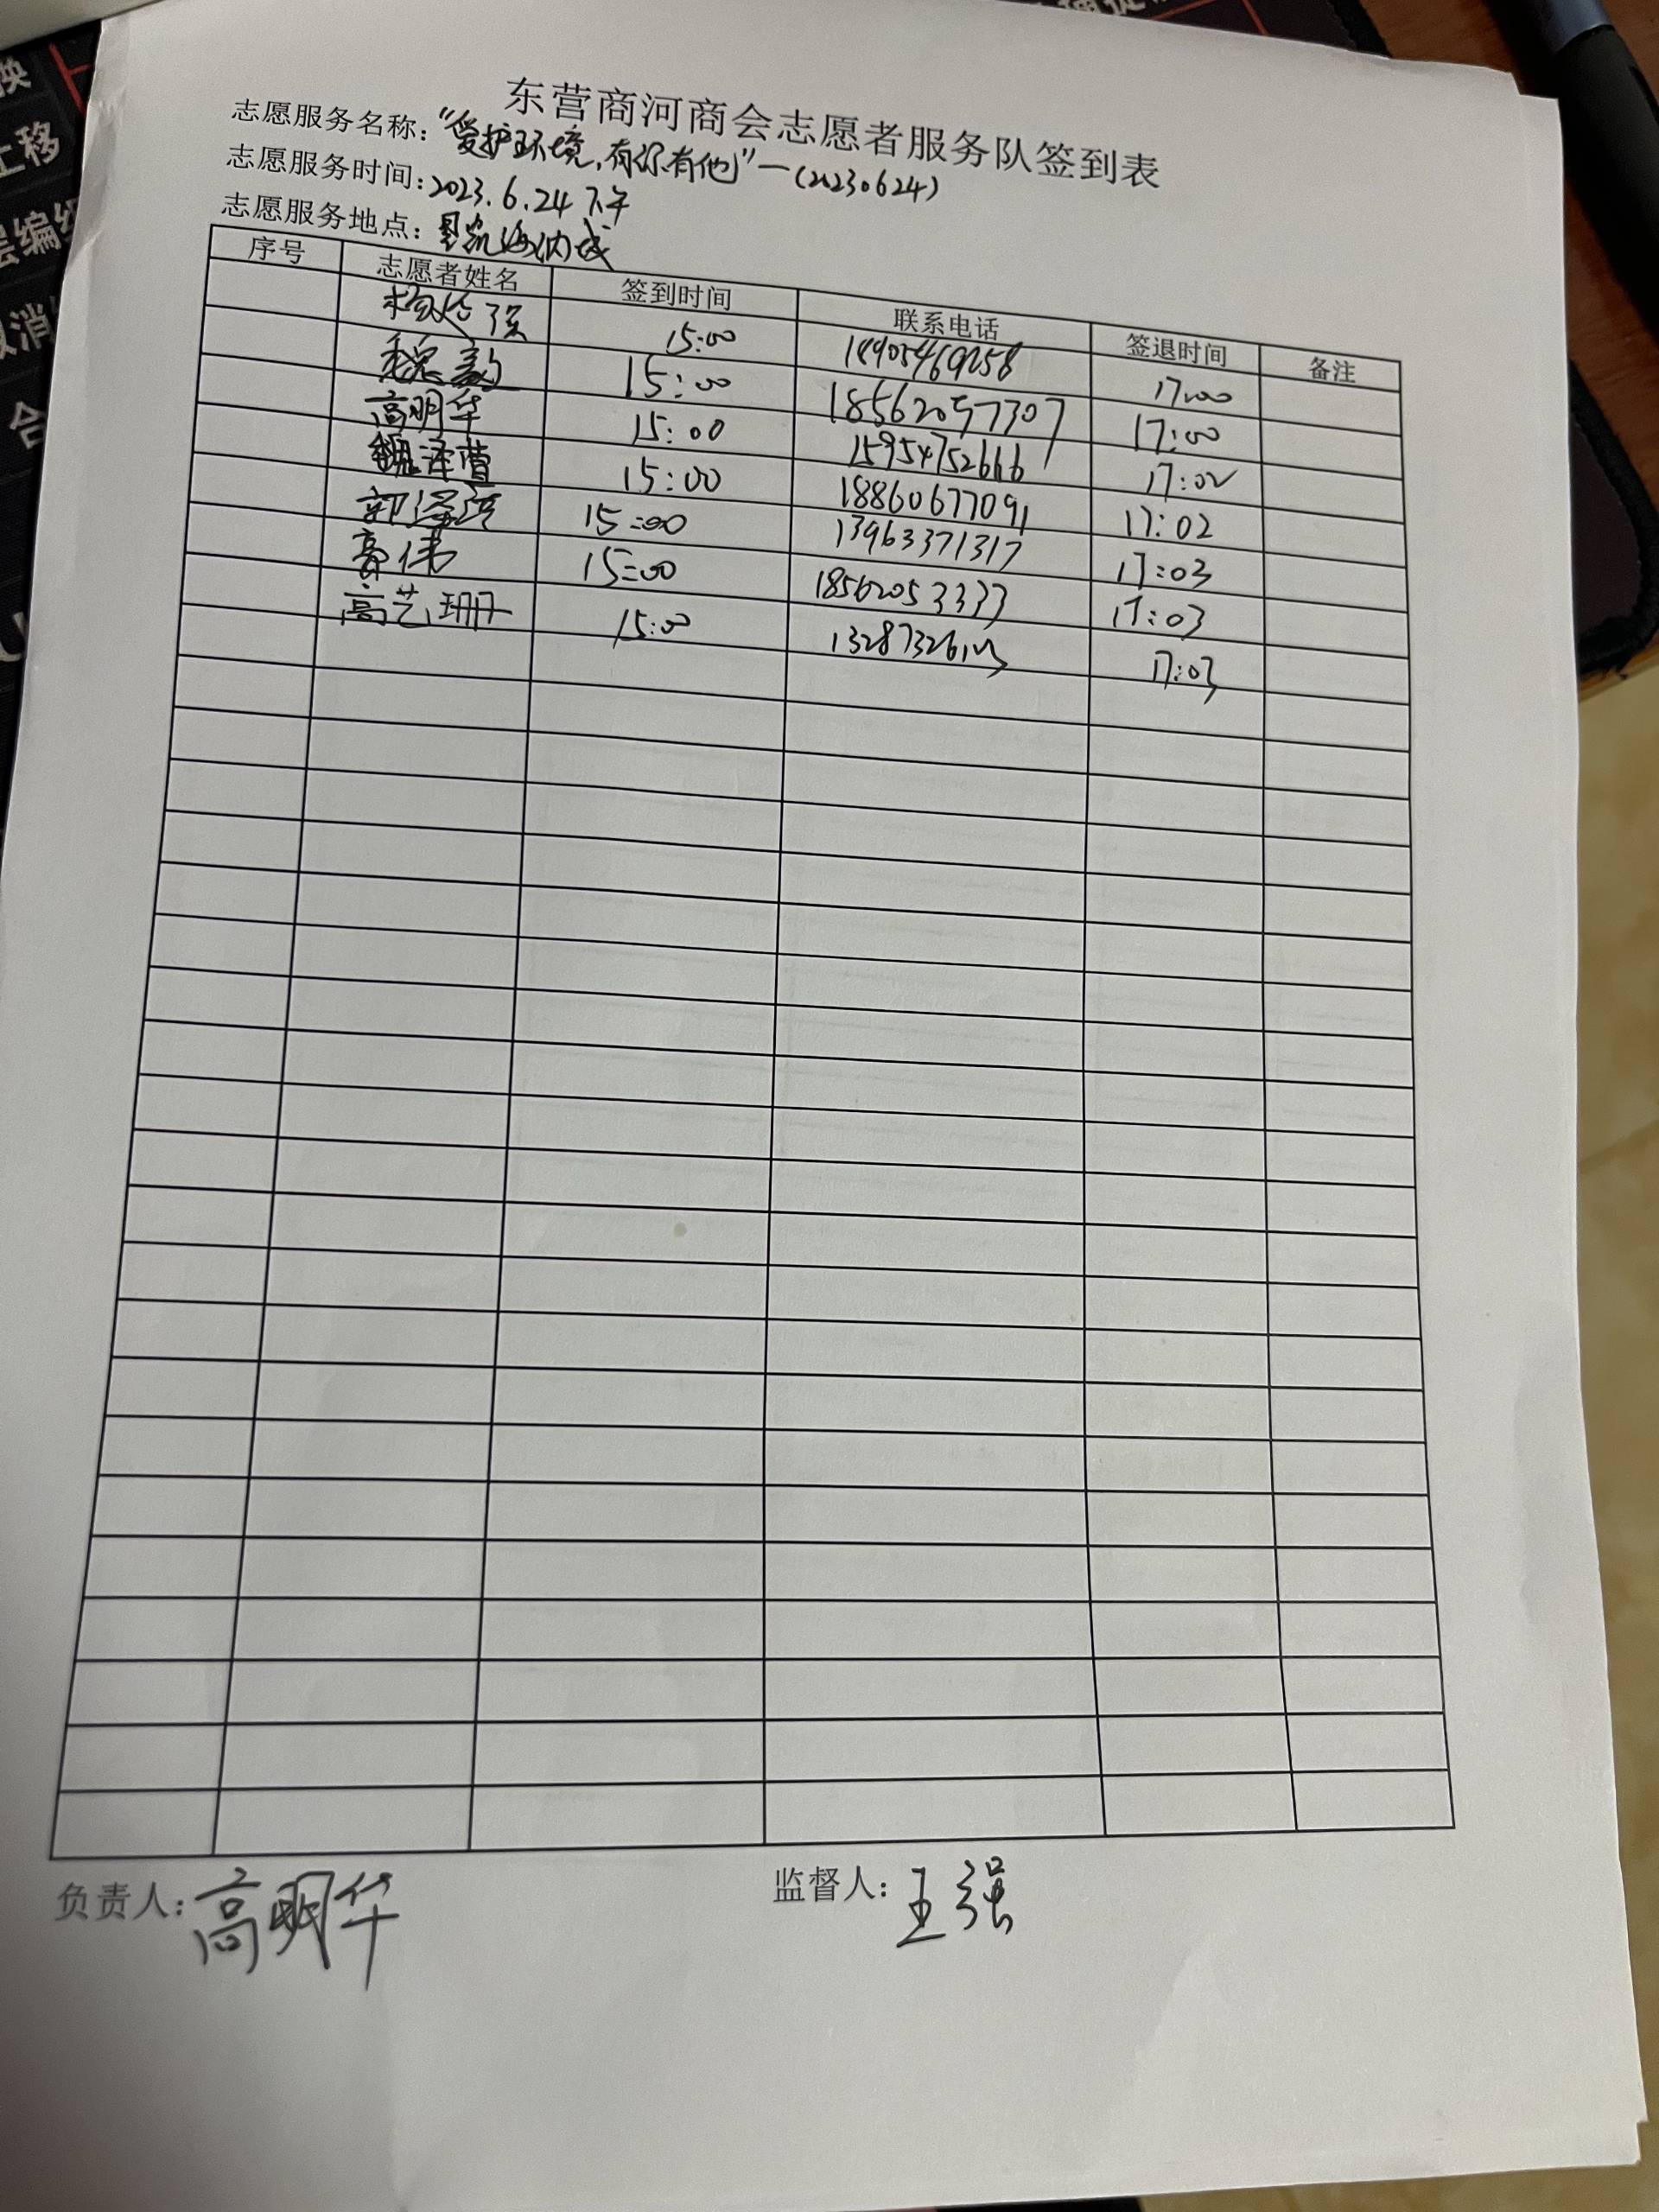 东营商河商会志愿者服务队签到表
志愿服务名称："爱护环境,有你有他"一(20230624)
志愿服务时间：2023.6.24 下午
志愿服务地点：海纳城
序号 志愿者姓名 签到时间 联系电话 签退时间 备注
15:00 17:00
魏 15:00 18562057307 17:00
高明华 15:00 15954752666 17:02
魏泽萱 15:00 18860677091 17:02
郭泽 15:00 13963371317 17:03
高伟 15:00 18562053333 17:03
高艺珊 15:00 17:03
负责人：高明华 监督人：王强
换
上移
层编组
取消
合